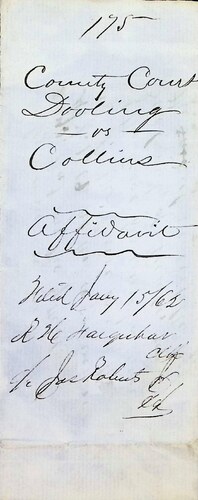 175
County Court
Dooling
vs
Collins
Affidavit
Filed Jany 15/62
R H Farquhar
Clk
Jas Roberts